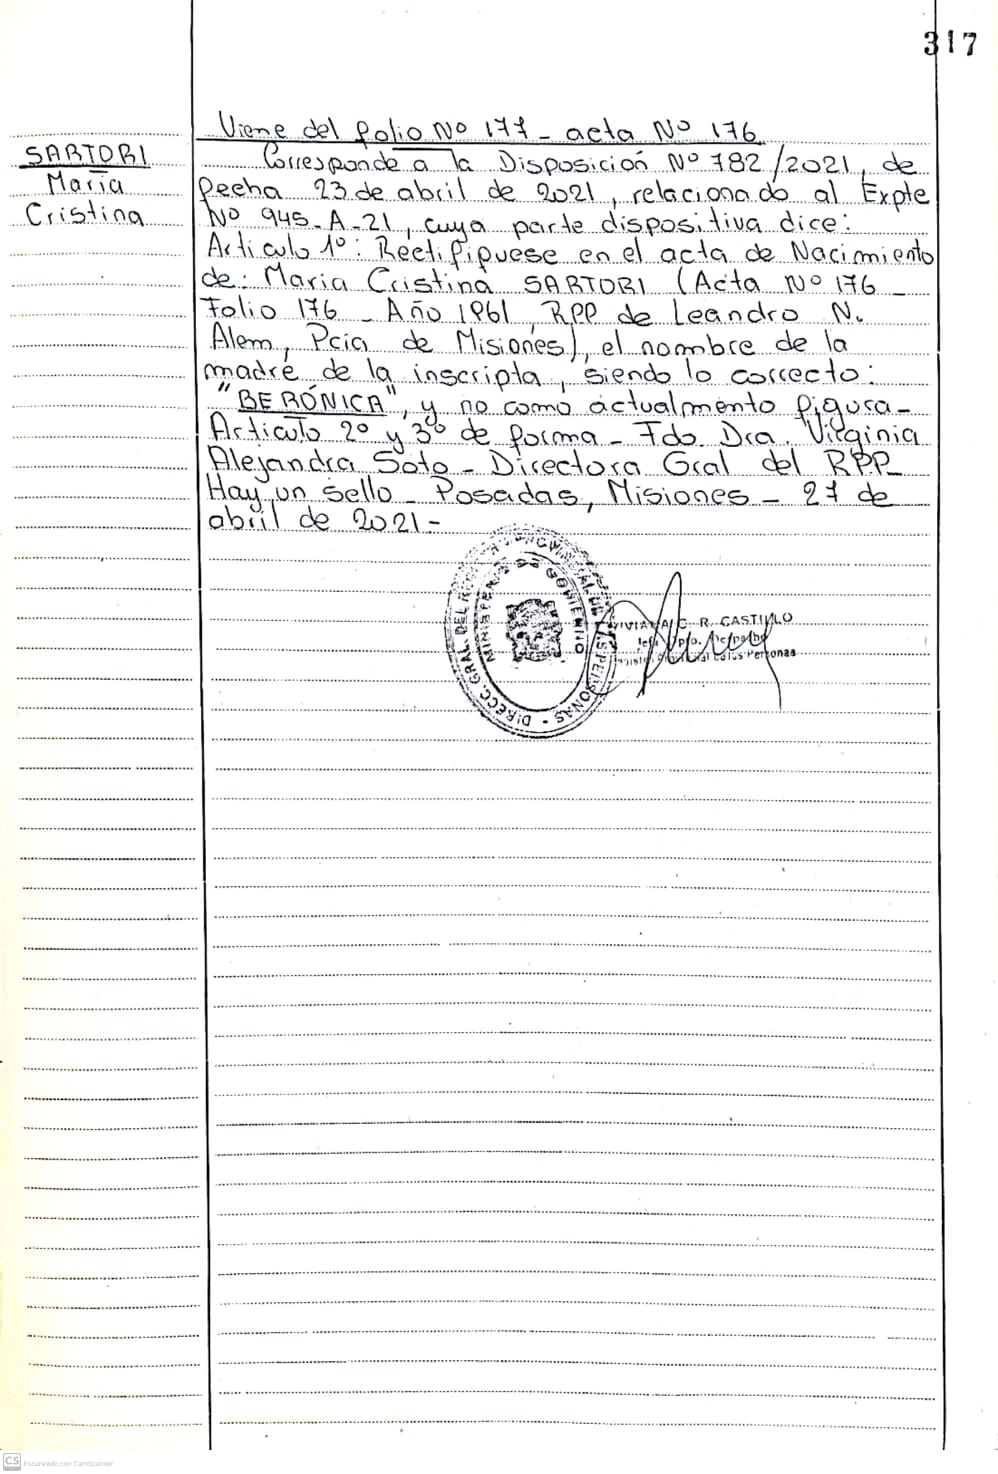 317
Viene del folio Nº 177 - acta Nº 176
SARTORI
María
Cristina
Corresponde a la Disposición Nº 782/2021, de
fecha 23 de abril de 2021, relacionado al Expte
Nº 945-A-21, cuya parte dispositiva dice:
Articulo 1º: Rectifíquese en el acta de Nacimiento
de: Maria Cristina SARTORI (Acta Nº 176
Folio 176 - Año 1961, RPP de Leandro N.
Alem, Pcia de Misiones), el nombre de la
madre de la inscripta, siendo lo correcto:
"BERÓNICA", y no como actualmento figura-
Articulo 2º y 3º de forma - Fdo. Dra. Virginia
Alejandra Soto - Directora Gral del RPP-
Hay un sello - Posadas, Misiones - 27 de
abril de 2021-
DIRECC. GRAL. DEL DE LAS PERSONAS
MINISTERIO DE GOBIERNO
VIVIANA C. R. CASTILLO
Personas
CS Escaneado con CamScanner